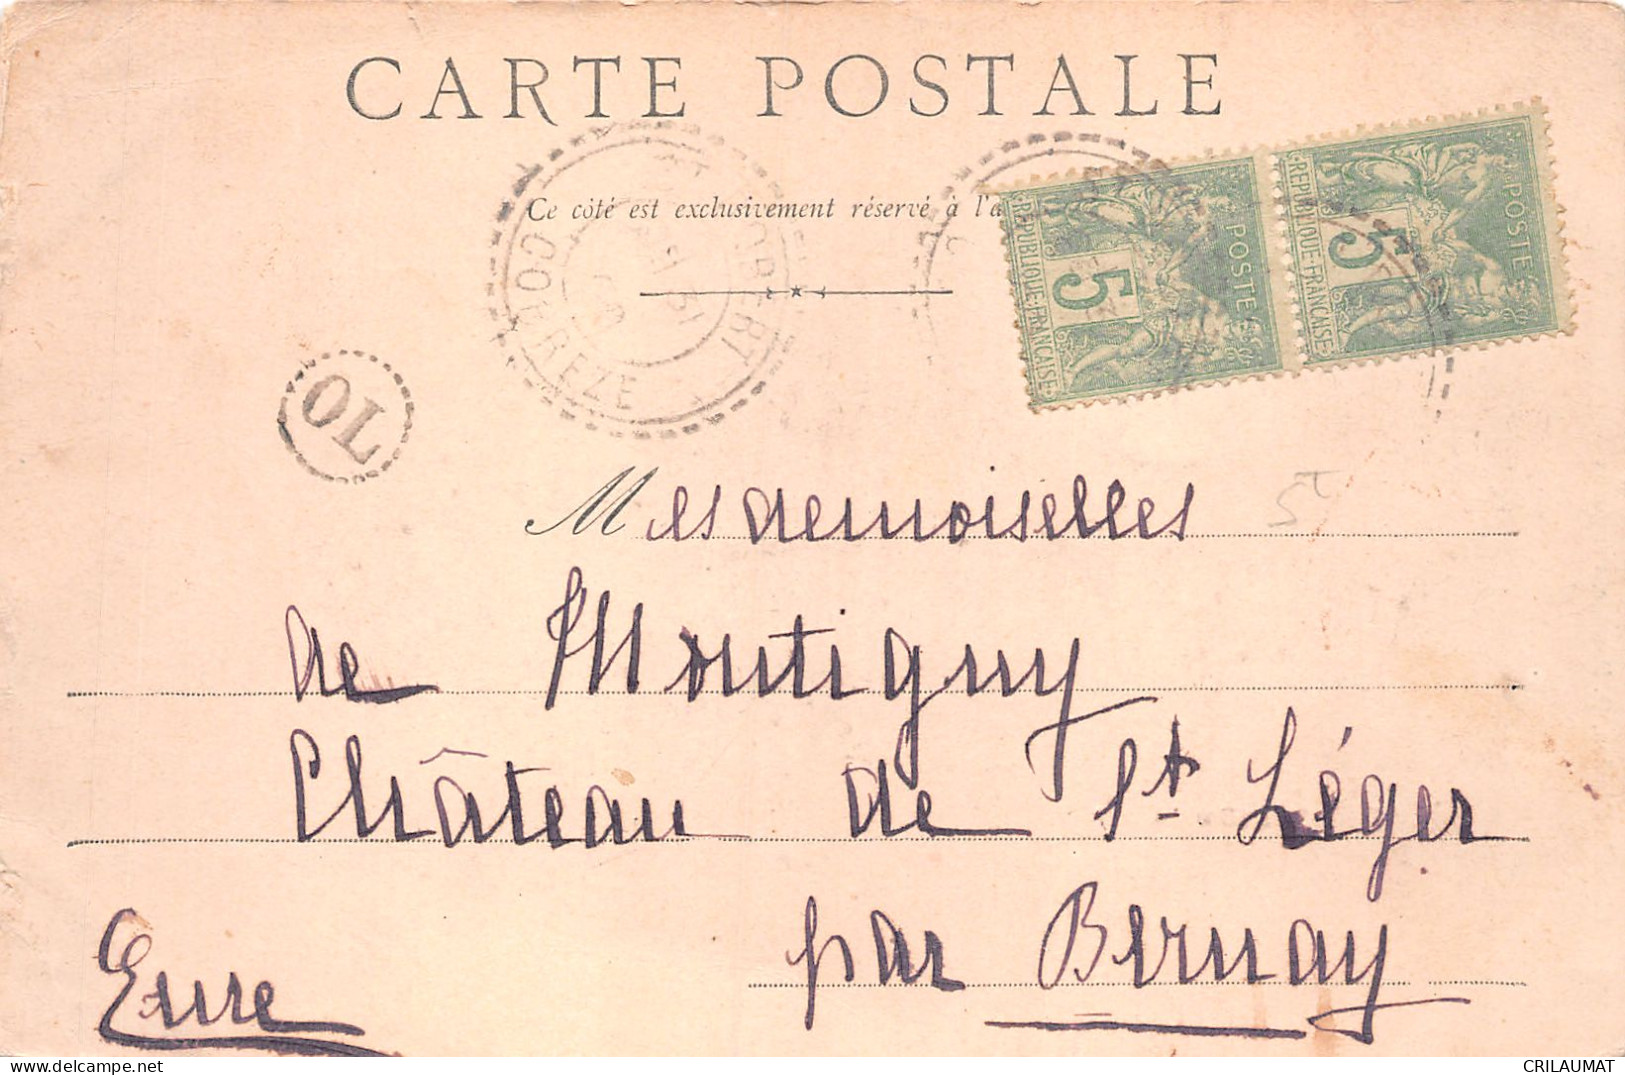 CARTE POSTALE
Ce côté est exclusivement réservé à l'a
CORREZE
OL
POSTE
5
REPUBLIQUE FRANÇAISE
POSTE
5
REPUBLIQUE FRANÇAISE
5
Mesdemoiselles
de Montigny
Château de St Léger
par Bernay
Eure
CRILAUMAT